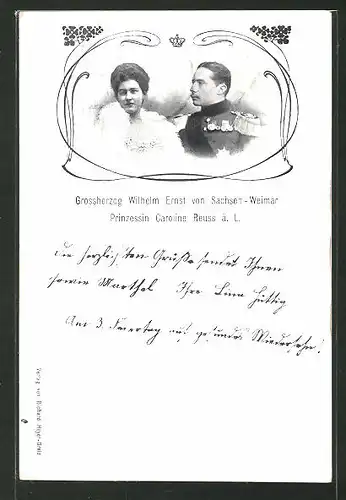 Grossherzog Wilhelm Ernst von Sachsen-Weimar
Prinzessin Caroline Reuss ä. L.
Die herzlichsten Grüße sendet Ihnen
sowie Marthel Ihre Lina Hüttig
Am 3. Feiertag auf gesundes Wiedersehn!
Verlag von Richard